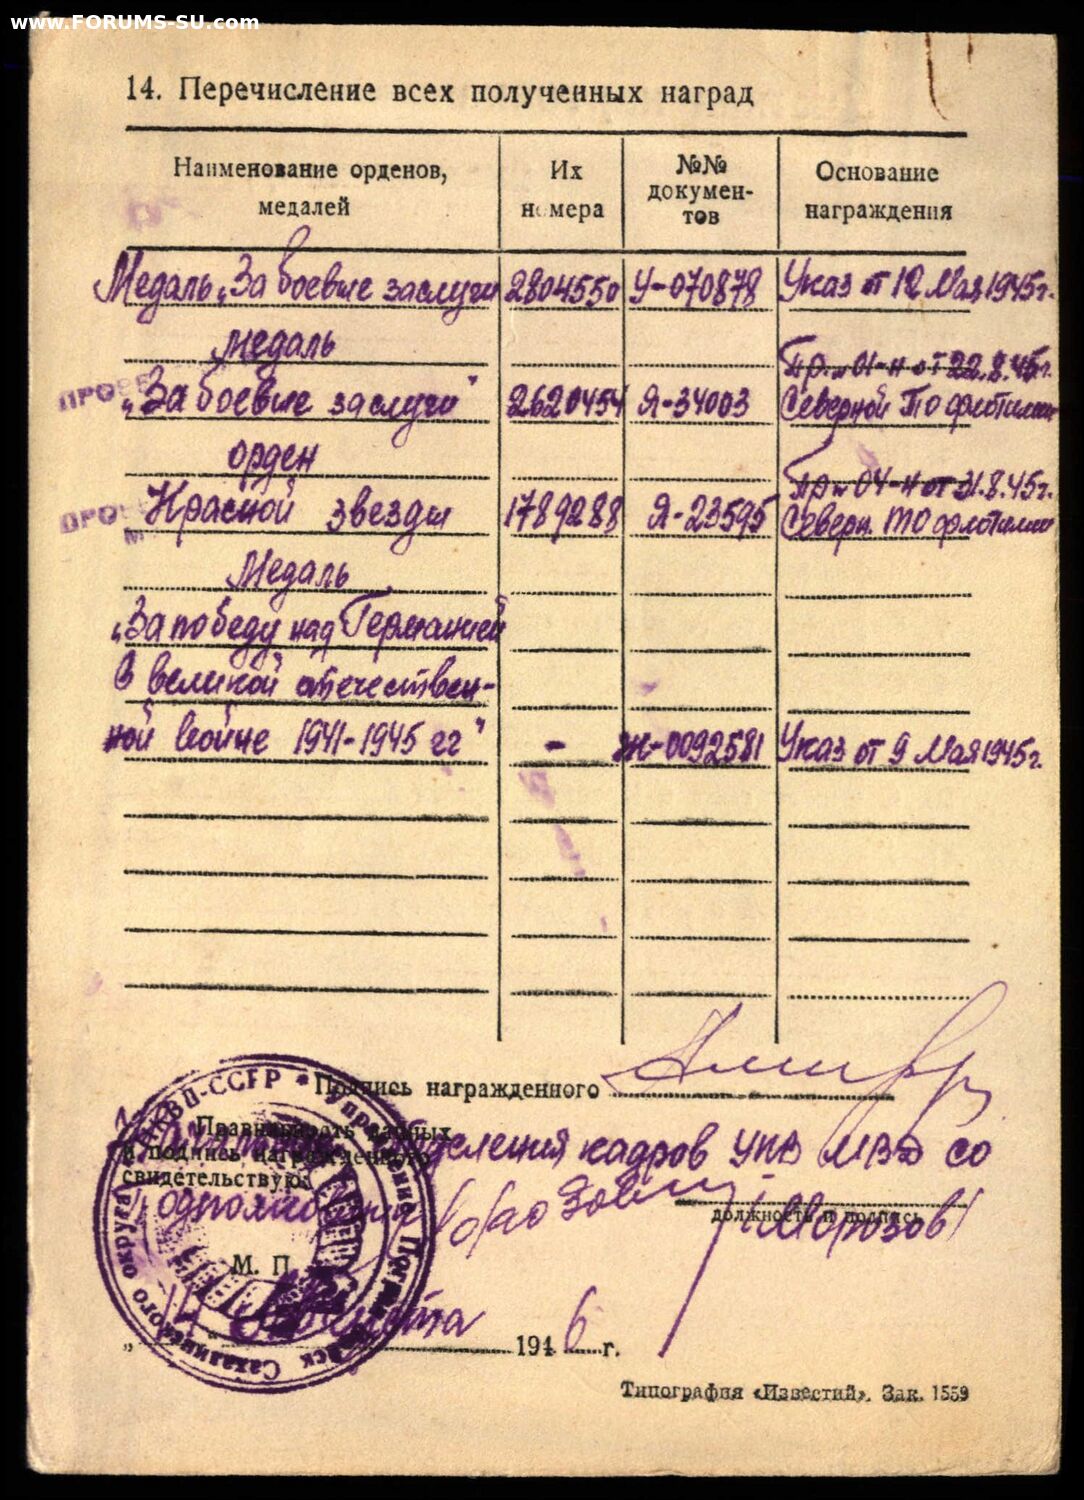 www.FORUMS-SU.com
14. Перечисление всех полученных наград
Наименование орденов, медалей
Их номера
№№ документов
Основание награждения
Медаль „За боевые заслуги 2804550 У-070878 Указ от 12 Мая 1945г.
медаль
Пр. и 01-н от 22.8.45г.
„За боевые заслуги" 2620454 Я-34003 Северной ТО флотилии
орден
Пр и 04-н от 31.8.45г.
Красной звезды 1789288 Я-23595 Северн. ТО флотилии
Медаль
„За победу над Германией
в великой отечествен-
ной войне 1941-1945 гг" - Ж-0092581 Указ от 9 Мая 1945г.
Подпись награжденного
Правильность данных
и подпись награжденного
свидетельствую:
кадров УПВ МВД СО
должность и подпись
/Морозов/
М. П.
14 Августа 1946 г.
НКВД-СССР * Управления Погран
Сахалинского округа
Типография «Известий». Зак. 1559